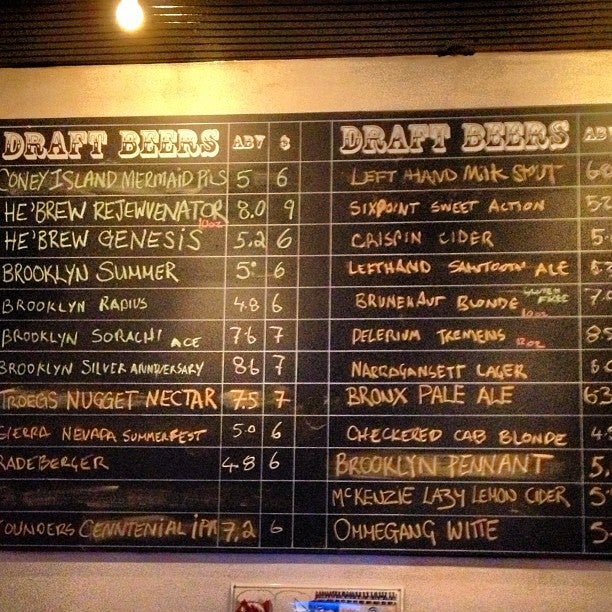 DRAFT BEERS ABV $
CONEY ISLAND MERMAID PILS 5 6
HE'BREW REJEWVENATOR 10oz 8.0 9
HE'BREW GENESIS 5.2 6
BROOKLYN SUMMER 5. 6
BROOKLYN RADIUS 4.8 6
BROOKLYN SORACHI ACE 7.6 7
BROOKLYN SILVER ANNIVERSARY 8.6 7
TROEGS NUGGET NECTAR 7.5 7
SIERRA NEVADA SUMMERFEST 5.0 6
RADEBERGER 4.8 6
FOUNDERS CENNTENIAL IPA 7.2 6
DRAFT BEERS AB
LEFT HAND MILK STOUT
SIXPOINT SWEET ACTION
CRISPIN CIDER 5.
LEFTHAND SAWTOOTH ALE
BRUNEHAUT BLONDE GLUTEN FREE 10oz
DELERIUM TREMENS 12oz
NARRAGANSETT LAGER
BRONX PALE ALE 6.3
CHECKERED CAB BLONDE 4.
BROOKLYN PENNANT 5.
MCKENZIE LAZY LEMON CIDER 5
OMMEGANG WITTE 5